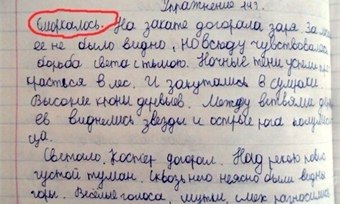 Упражнение 147.
Смеркалось. На закате догорала заря. За
ее не было видно, но всюду чувствовалась
борьба света с тьмою. Ночные тени успели
в лес. И закутались в сумрак
Высокие кроны деревьев. Между ветвями
ев виднелись звезды и острые рога
ца.
Светало. Костёр догорал. Над рекою
густой туман. Сквозь него неясно были видны
горы. Весёлые голоса, шутки, смех разносились